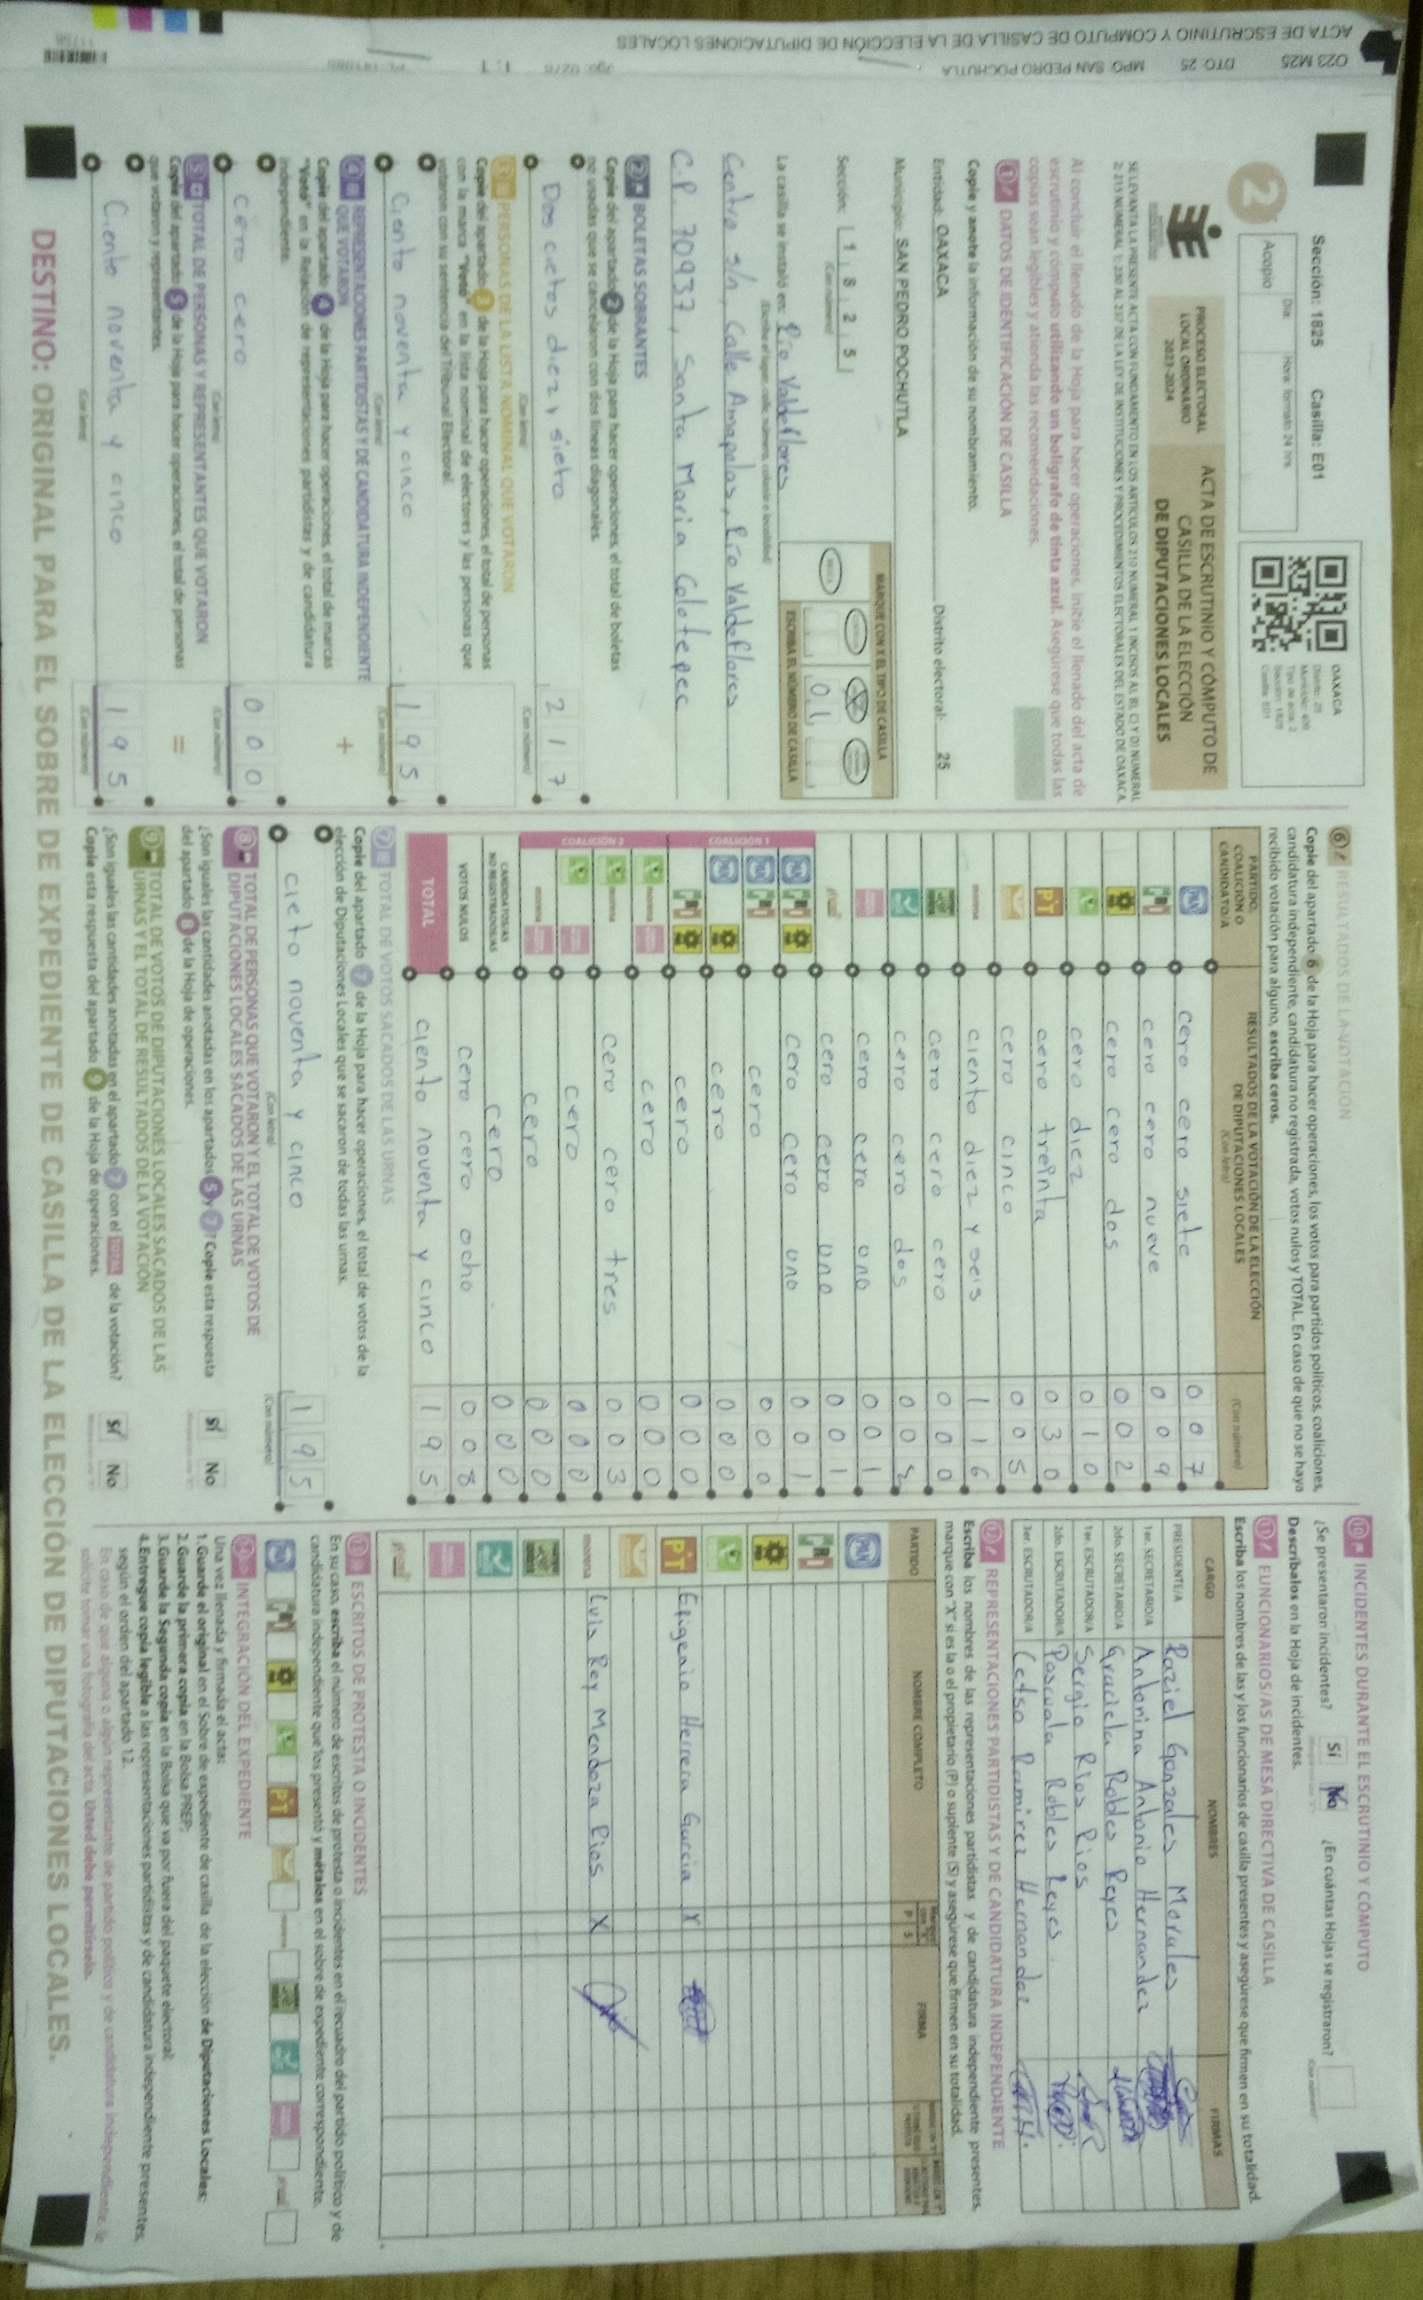 Sección: 1825 Casilla: E01
Día: Hora: formato 24 hrs
2 Acopio
OAXACA
Distrito: 25
Casilla: E01
PROCESO ELECTORAL
LOCAL ORDINARIO
2023-2024
ACTA DE ESCRUTINIO Y CÓMPUTO DE
CASILLA DE LA ELECCIÓN
DE DIPUTACIONES LOCALES
Al concluir el llenado de la Hoja para hacer operaciones, inicie el llenado del acta de
escrutinio y cómputo utilizando un bolígrafo de tinta azul. Asegúrese que todas las
copias sean legibles y atienda las recomendaciones.
1 DATOS DE IDENTIFICACIÓN DE CASILLA
Copie y anote la información de su nombramiento.
Entidad: OAXACA Distrito electoral: 25
Municipio: SAN PEDRO POCHUTLA
Sección: 1 8 2 5
(Con número)
MARQUE CON X EL TIPO DE CASILLA
0 1
ESCRIBA EL NÚMERO DE CASILLA
La casilla se instaló en: Río Valdeflores
Centro s/n, Calle Amapolas, Río Valdeflores
C.P. 70937, Santa María Colotepec
2 BOLETAS SOBRANTES
Copie del apartado 2 de la Hoja para hacer operaciones, el total de boletas
no usadas que se cancelaron con dos líneas diagonales.
Dos cietos diez y sieto 2 1 7
(Con letra) (Con número)
3 PERSONAS DE LA LISTA NOMINAL QUE VOTARON
Copie del apartado 3 de la Hoja para hacer operaciones, el total de personas
con la marca "Votó" en la lista nominal de electores y las personas que
votaron con su sentencia del Tribunal Electoral.
Ciento noventa y cinco 1 9 5
(Con letra) (Con número)
4 REPRESENTACIONES PARTIDISTAS Y DE CANDIDATURA INDEPENDIENTE
QUE VOTARON
Copie del apartado 4 de la Hoja para hacer operaciones, el total de marcas
"Votó" en la Relación de representaciones partidistas y de candidatura
independiente.
cero cero 0 0 0
(Con letra) (Con número)
5 TOTAL DE PERSONAS Y REPRESENTANTES QUE VOTARON
Copie del apartado 5 de la Hoja para hacer operaciones, el total de personas
que votaron y representantes.
Ciento noventa y cinco 1 9 5
(Con letra) (Con número)
6 RESULTADOS DE LA VOTACIÓN
Copie del apartado 6 de la Hoja para hacer operaciones, los votos para partidos políticos, coaliciones,
candidatura independiente, candidatura no registrada, votos nulos y TOTAL. En caso de que no se haya
recibido votación para alguno, escriba ceros.
PARTIDO, COALICIÓN O CANDIDATO/A
RESULTADOS DE LA VOTACIÓN DE LA ELECCIÓN
DE DIPUTACIONES LOCALES
(Con letra) (Con número)
PAN cero cero siete 0 0 7
PRI cero cero nueve 0 0 9
PRD cero cero dos 0 0 2
cero diez 0 1 0
PT cero treinta 0 3 0
cero cinco 0 0 5
morena ciento diez y seis 1 1 6
cero cero cero 0 0 0
cero cero dos 0 0 2
cero cero uno 0 0 1
cero cero uno 0 0 1
COALICIÓN 1
PAN PRI PRD cero cero uno 0 0 1
PAN PRI cero 0 0 0
PAN PRD cero 0 0 0
PRI PRD cero 0 0 0
COALICIÓN 2
cero 0 0 0
cero cero tres 0 0 3
cero 0 0 0
cero 0 0 0
CANDIDATOS/AS NO REGISTRADOS/AS cero 0 0 0
VOTOS NULOS cero cero ocho 0 0 8
TOTAL ciento noventa y cinco 1 9 5
7 TOTAL DE VOTOS SACADOS DE LAS URNAS
Copie del apartado 7 de la Hoja para hacer operaciones, el total de votos de la
elección de Diputaciones Locales que se sacaron de todas las urnas.
cieto noventa y cinco 1 9 5
(Con letra) (Con número)
8 TOTAL DE PERSONAS QUE VOTARON Y EL TOTAL DE VOTOS DE
DIPUTACIONES LOCALES SACADOS DE LAS URNAS
¿Son iguales las cantidades anotadas en los apartados 5 y 7? Copie esta respuesta
del apartado 8 de la Hoja de operaciones. Sí No
9 TOTAL DE VOTOS DE DIPUTACIONES LOCALES SACADOS DE LAS
URNAS Y EL TOTAL DE RESULTADOS DE LA VOTACIÓN
¿Son iguales las cantidades anotadas en el apartado 7 con el TOTAL de la votación?
Copie esta respuesta del apartado 9 de la Hoja de operaciones. Sí No
10 INCIDENTES DURANTE EL ESCRUTINIO Y CÓMPUTO
¿Se presentaron incidentes? Sí No ¿En cuántas Hojas se registraron?
Descríbalos en la Hoja de incidentes.
11 FUNCIONARIOS/AS DE MESA DIRECTIVA DE CASILLA
Escriba los nombres de las y los funcionarios de casilla presentes y asegúrese que firmen en su totalidad.
CARGO NOMBRES FIRMAS
PRESIDENTE/A Raziel Gonzales Morales
1er. SECRETARIO/A Antonina Antonio Hernandez
2do. SECRETARIO/A Graciela Robles Reyes
1er. ESCRUTADOR/A Sergio Rios Rios
2do. ESCRUTADOR/A Pascuala Robles Reyes
3er. ESCRUTADOR/A Celso Ramirez Hernandez
12 REPRESENTACIONES PARTIDISTAS Y DE CANDIDATURA INDEPENDIENTE
Escriba los nombres de las representaciones partidistas y de candidatura independiente presentes,
marque con "X" si es la o el propietario (P) o suplente (S) y asegúrese que firmen en su totalidad.
PARTIDO NOMBRE COMPLETO P S FIRMA
PT Efigenio Herrera Garcia X
morena Luis Rey Mendoza Rios X
13 ESCRITOS DE PROTESTA O INCIDENTES
En su caso, escriba el número de escritos de protesta o incidentes en el recuadro del partido político y de
candidatura independiente que los presentó y métalos en el sobre de expediente correspondiente.
14 INTEGRACIÓN DEL EXPEDIENTE
Una vez llenada y firmada el acta:
1. Guarde el original en el Sobre de expediente de casilla de la elección de Diputaciones Locales;
2. Guarde la primera copia en la Bolsa PREP;
3. Guarde la Segunda copia en la Bolsa que va por fuera del paquete electoral;
4. Entregue copia legible a las representaciones partidistas y de candidatura independiente presentes,
según el orden del apartado 12.
En caso de que alguna o algún representante de partido político y de candidatura independiente, le
solicite tomar una fotografía del acta, Usted debe permitírselo.
DESTINO: ORIGINAL PARA EL SOBRE DE EXPEDIENTE DE CASILLA DE LA ELECCIÓN DE DIPUTACIONES LOCALES.
O23 M25 DTO: 25 MPO: SAN PEDRO POCHUTLA
ACTA DE ESCRUTINIO Y COMPUTO DE CASILLA DE LA ELECCIÓN DE DIPUTACIONES LOCALES